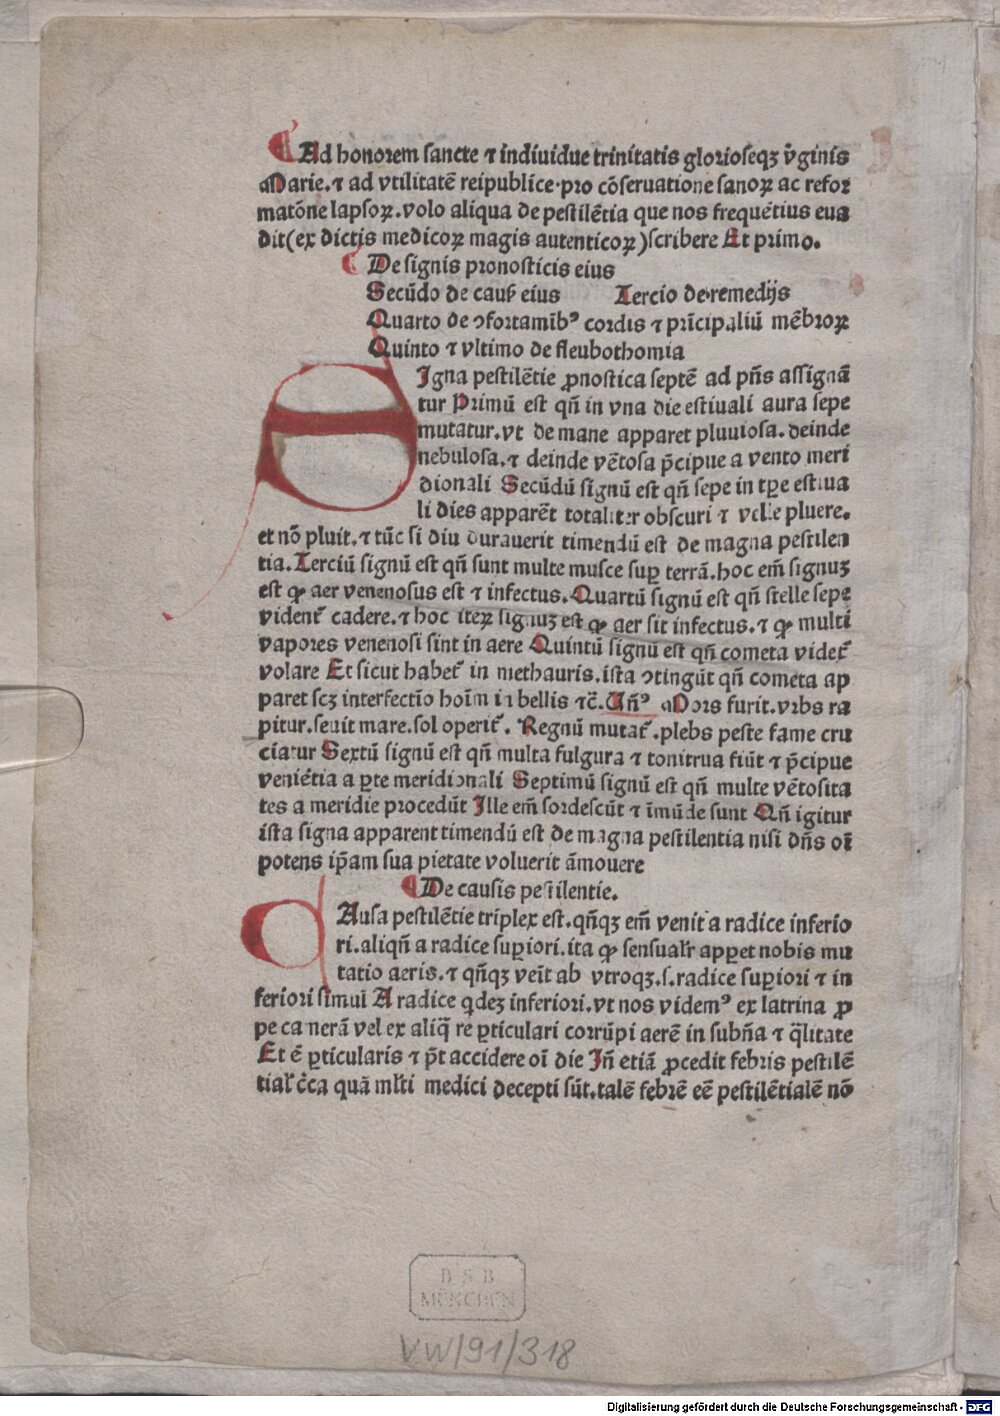 ¶Ad honorem sancte ⁊ indiuidue trinitatis glorioseqꝫ v̓ginis
Marie.⁊ ad vtilitatē reipublice·pro cōseruatione sanoꝝ ac refor
matōne lapsoꝝ.volo aliqua de pestilētia que nos frequētius eua
dit(ex dictis medicoꝝ magis autenticoꝝ)scribere Et primo.
¶ De signis pronosticis eius
Secūdo de cauß eius Tercio de remedijs
Quarto de ↄfortamīb⁹ cordis ⁊ prīcipaliū mēbroꝝ
Quinto ⁊ vltimo de fleubothomia
SIgna pestilētie ꝓnostica septē ad pn̄s assignā
tur Primū est qn̄ in vna die estiuali aura sepe
mutatur.vt de mane apparet pluuiosa.deinde
nebulosa.⁊ deinde vētosa p̄cipue a vento meri
dionali Secūdū signū est qn̄ sepe in tꝑe estiua
li dies apparēt totaliter obscuri ⁊ velle pluere.
et nō pluit.⁊ tūc si diu durauerit timendū est de magna pestilen
tia.Terciū signū est qn̄ sunt multe musce suꝑ terrā.hoc em̄ signuꝫ
est ꝙ aer venenosus est ⁊ infectus.Quartū signū est qn̄ stelle sepe
vident᷑ cadere.⁊ hoc iteꝝ signuꝫ est ꝙ aer sit infectus.⁊ ꝙ multi
vapores venenosi sint in aere Quintū signū est qn̄ cometa videt᷑
volare Et sicut habet᷑ in methauris.ista ↄtingūt qn̄ cometa ap
paret scꝫ interfectio hoīm in bellis ⁊c̄.Un̄⁹ Mors furit.vrbs ra
pitur.seuit mare.sol operit᷑. Regnū mutat᷑.plebs peste fame cru
ciatur Sextū signū est qn̄ multa fulgura ⁊ tonitrua fiūt ⁊ p̄cipue
veniētia a ꝑte meridionali Septimū signū est qn̄ multe vētosita
tes a meridie procedūt Ille em̄ sordescūt ⁊ īmūde sunt Qn̄ igitur
ista signa apparent timendū est de magna pestilentia nisi dn̄s oī
potens ip̄am sua pietate voluerit āmouere
¶De causis pestilentie.
CAusa pestilētie triplex est.qn̄qꝫ em̄ venit a radice inferio
ri.aliqn̄ a radice suꝑiori.ita ꝙ sensualr̄ apꝑet nobis mu
tatio aeris.⁊ qn̄qꝫ veīt ab vtroqꝫ.s.radice suꝑiori ⁊ in
feriori simul A radice qͥdeꝫ inferiori.vt nos videm⁹ ex latrina ꝓ
pe camerā vel ex aliq̄ re ꝑticulari corrūpi aerē in subn̄a ⁊ q̄litate
Et ē ꝑticularis ⁊ p̄t accidere oī die In̄ etiā ꝓcedit febris pestilē
tial᷑ c̓ca quā ml̓ti medici decepti sūt.talē febrē eē pestilētialē nō
BSB
MÜNCHEN
VW/91/318
Digitalisierung gefördert durch die Deutsche Forschungsgemeinschaft - DFG